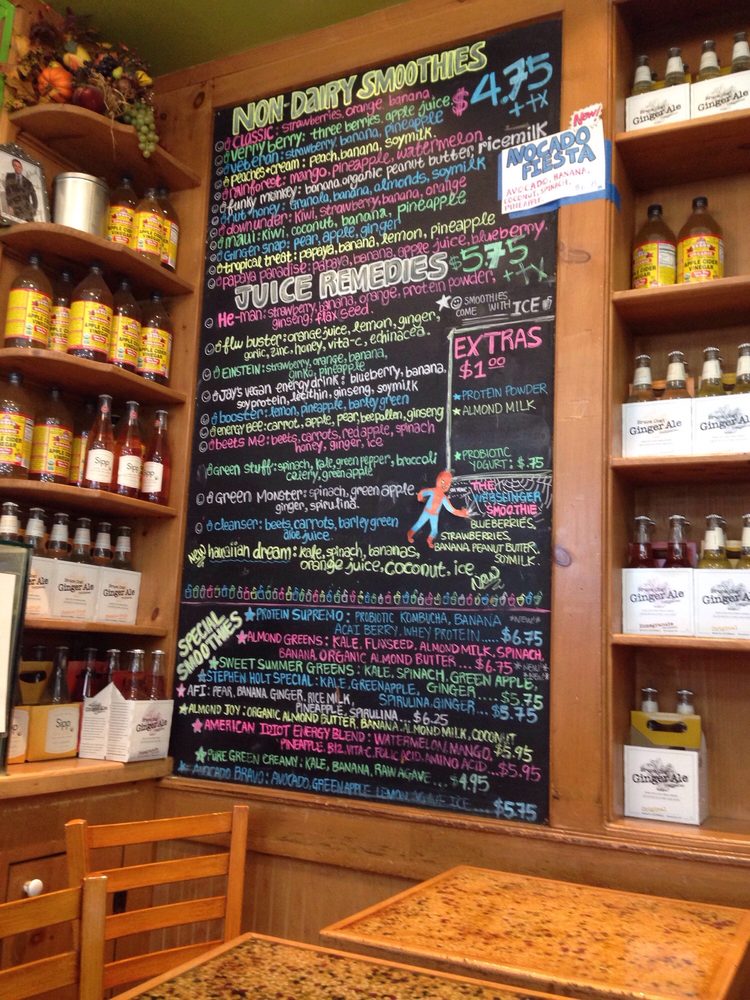 NON-DAIRY SMOOTHIES
$4.75
+TX
CLASSIC: strawberries, orange, banana,
Verry Berry: three berries, apple juice
Veteran: strawberry, banana, pineapple
Peaches+cream: peach, banana, soymilk
rainforest: mango, pineapple, watermelon
funky monkey: banana, organic peanut butter, ricemilk
nut+honey: granola, banana, almonds, soymilk
down under: kiwi, strawberry, banana, orange
maui: kiwi, coconut, banana, pineapple
Ginger snap: pear, apple, ginger
tropical treat: papaya, banana, lemon, pineapple
papaya paradise: papaya, banana, apple juice, blueberry,
New!
AVOCADO
FIESTA
AVOCADO, BANANA,
COCONUT, SPINACH,
PINEAPPLE.
JUICE REMEDIES $5.75
+TX
He-man: strawberry, banana, orange, protein powder,
ginseng, flax seed.
flu buster: orange juice, lemon, ginger,
garlic, zinc, honey, vita-c, echinacea.
EINSTEIN: strawberry, orange, banana,
Ginko, pineapple
JAY'S vegan energy drink: blueberry, banana,
soy protein, lecithin, ginseng, soymilk
booster: lemon, pineapple, barley green
energy Bee: carrot, apple, pear, bee pollen, ginseng
beets me: beets, carrots, red apple, spinach
honey, ginger, ice
Green stuff: spinach, kale, green pepper, broccoli
celery, green apple
Green Monster: spinach, green apple
ginger, spirulina.
cleanser: beets, carrots, barley green
aloe juice.
NEW hawaiian dream: kale, spinach, bananas,
orange juice, coconut, ice
New
SMOOTHIES
COME WITH ICE
EXTRAS
$1.00
PROTEIN POWDER
ALMOND MILK
PROBIOTIC
YOGURT: $.75
THE
WEBSLINGER
SMOOTHIE
BLUEBERRIES,
STRAWBERRIES,
BANANA, PEANUT BUTTER,
SOYMILK.
SPECIAL
SMOOTHIES
PROTEIN SUPREMO: PROBIOTIC KOMBUCHA, BANANA *NEW*
ACAI BERRY, WHEY PROTEIN.....$6.75
ALMOND GREENS: KALE, FLAXSEED, ALMOND MILK, SPINACH,
BANANA, ORGANIC ALMOND BUTTER....$6.75
SWEET SUMMER GREENS: KALE, SPINACH, GREEN APPLE,
GINGER....$5.75
STEPHEN HOLT SPECIAL: KALE, GREEN APPLE,
SPIRULINA, GINGER....$5.75
AFI: PEAR, BANANA, GINGER, RICE MILK,
PINEAPPLE, SPIRULINA...$6.25
ALMOND JOY: ORGANIC ALMOND BUTTER, BANANA, ALMOND MILK, COCONUT
$5.95
AMERICAN IDIOT ENERGY BLEND: WATERMELON, MANGO,
PINEAPPLE, B12, VITA-C, FOLIC ACID, AMINO ACID...$5.95
PURE GREEN CREAMY: KALE, BANANA, RAW AGAVE....$4.95
AVOCADO BRAVO: AVOCADO, GREEN APPLE, LEMON, AGAVE, ICE....$5.75
BRAGG
ORGANIC
APPLE CIDER
VINEGAR
Sipp
Sipp
Sipp
Bruce Cost
Ginger Ale
Bruce Cost
Ginger Ale
Pomegranate
Original